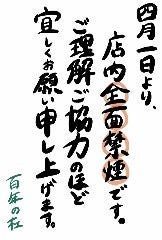 四月一日より、
店内全面禁煙です。
ご理解ご協力のほど
宜しくお願い申し上げます。
百年の杜